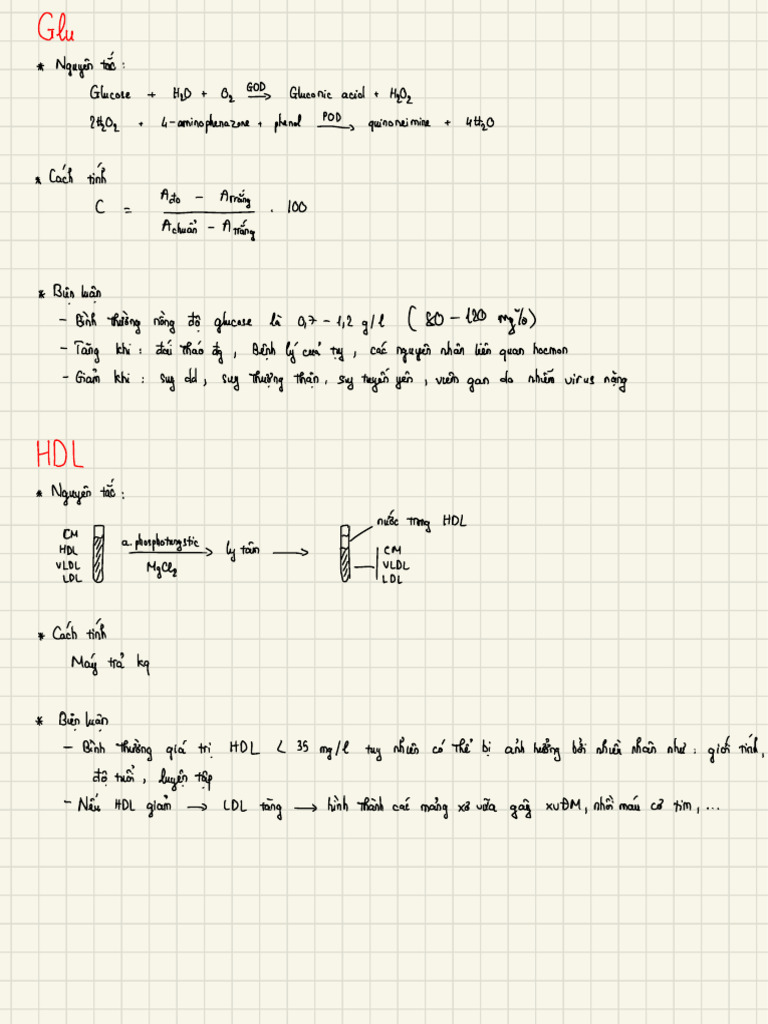 Glu
* Nguyên tắc :
Glucose + H2O + O2 GOD → Gluconic acid + H2O2
2H2O2 + 4-aminophenazone + phenol POD → quinoneimine + 4H2O
* Cách tính
C = (A đo - A Trắng) / (A chuẩn - A trắng) . 100
* Biện luận
- Bình thường nồng độ glucose là 0,7 - 1,2 g/l ( 80 - 120 mg%)
- Tăng khi : đái tháo đg , Bệnh lý của tụy , các nguyên nhân liên quan hocmon
- Giảm khi : suy dd , suy thượng thận , suy tuyến yên , viêm gan do nhiễm virus nặng
HDL
* Nguyên tắc :
CM
HDL
VLDL
LDL
a. phosphotungstic
MgCl2
→ ly tâm →
nước trong HDL
CM
VLDL
LDL
* Cách tính
Máy trả kq
* Biện luận
- Bình thường giá trị HDL < 35 mg/l tuy nhiên có thể bị ảnh hưởng bởi nhiều nhân như : giới tính ,
độ tuổi , luyện tập
- Nếu HDL giảm → LDL tăng → hình thành các mảng xơ vữa gây XVĐM , nhồi máu cơ tim , ...